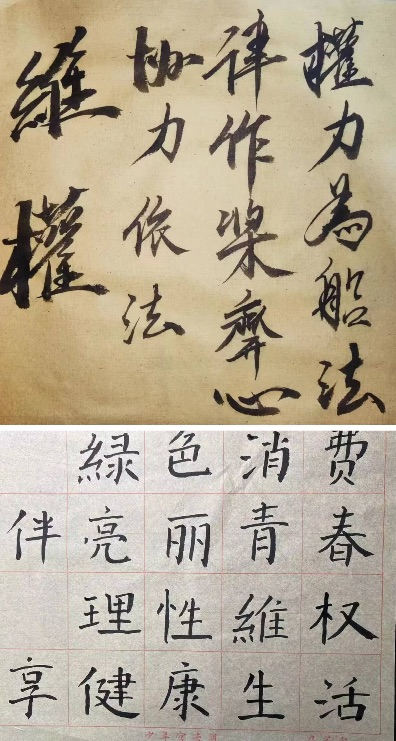 權力為船法
律作槳齊心
協力依法
維權
緑色消费
伴亮丽青春
理性維权
享健康生活